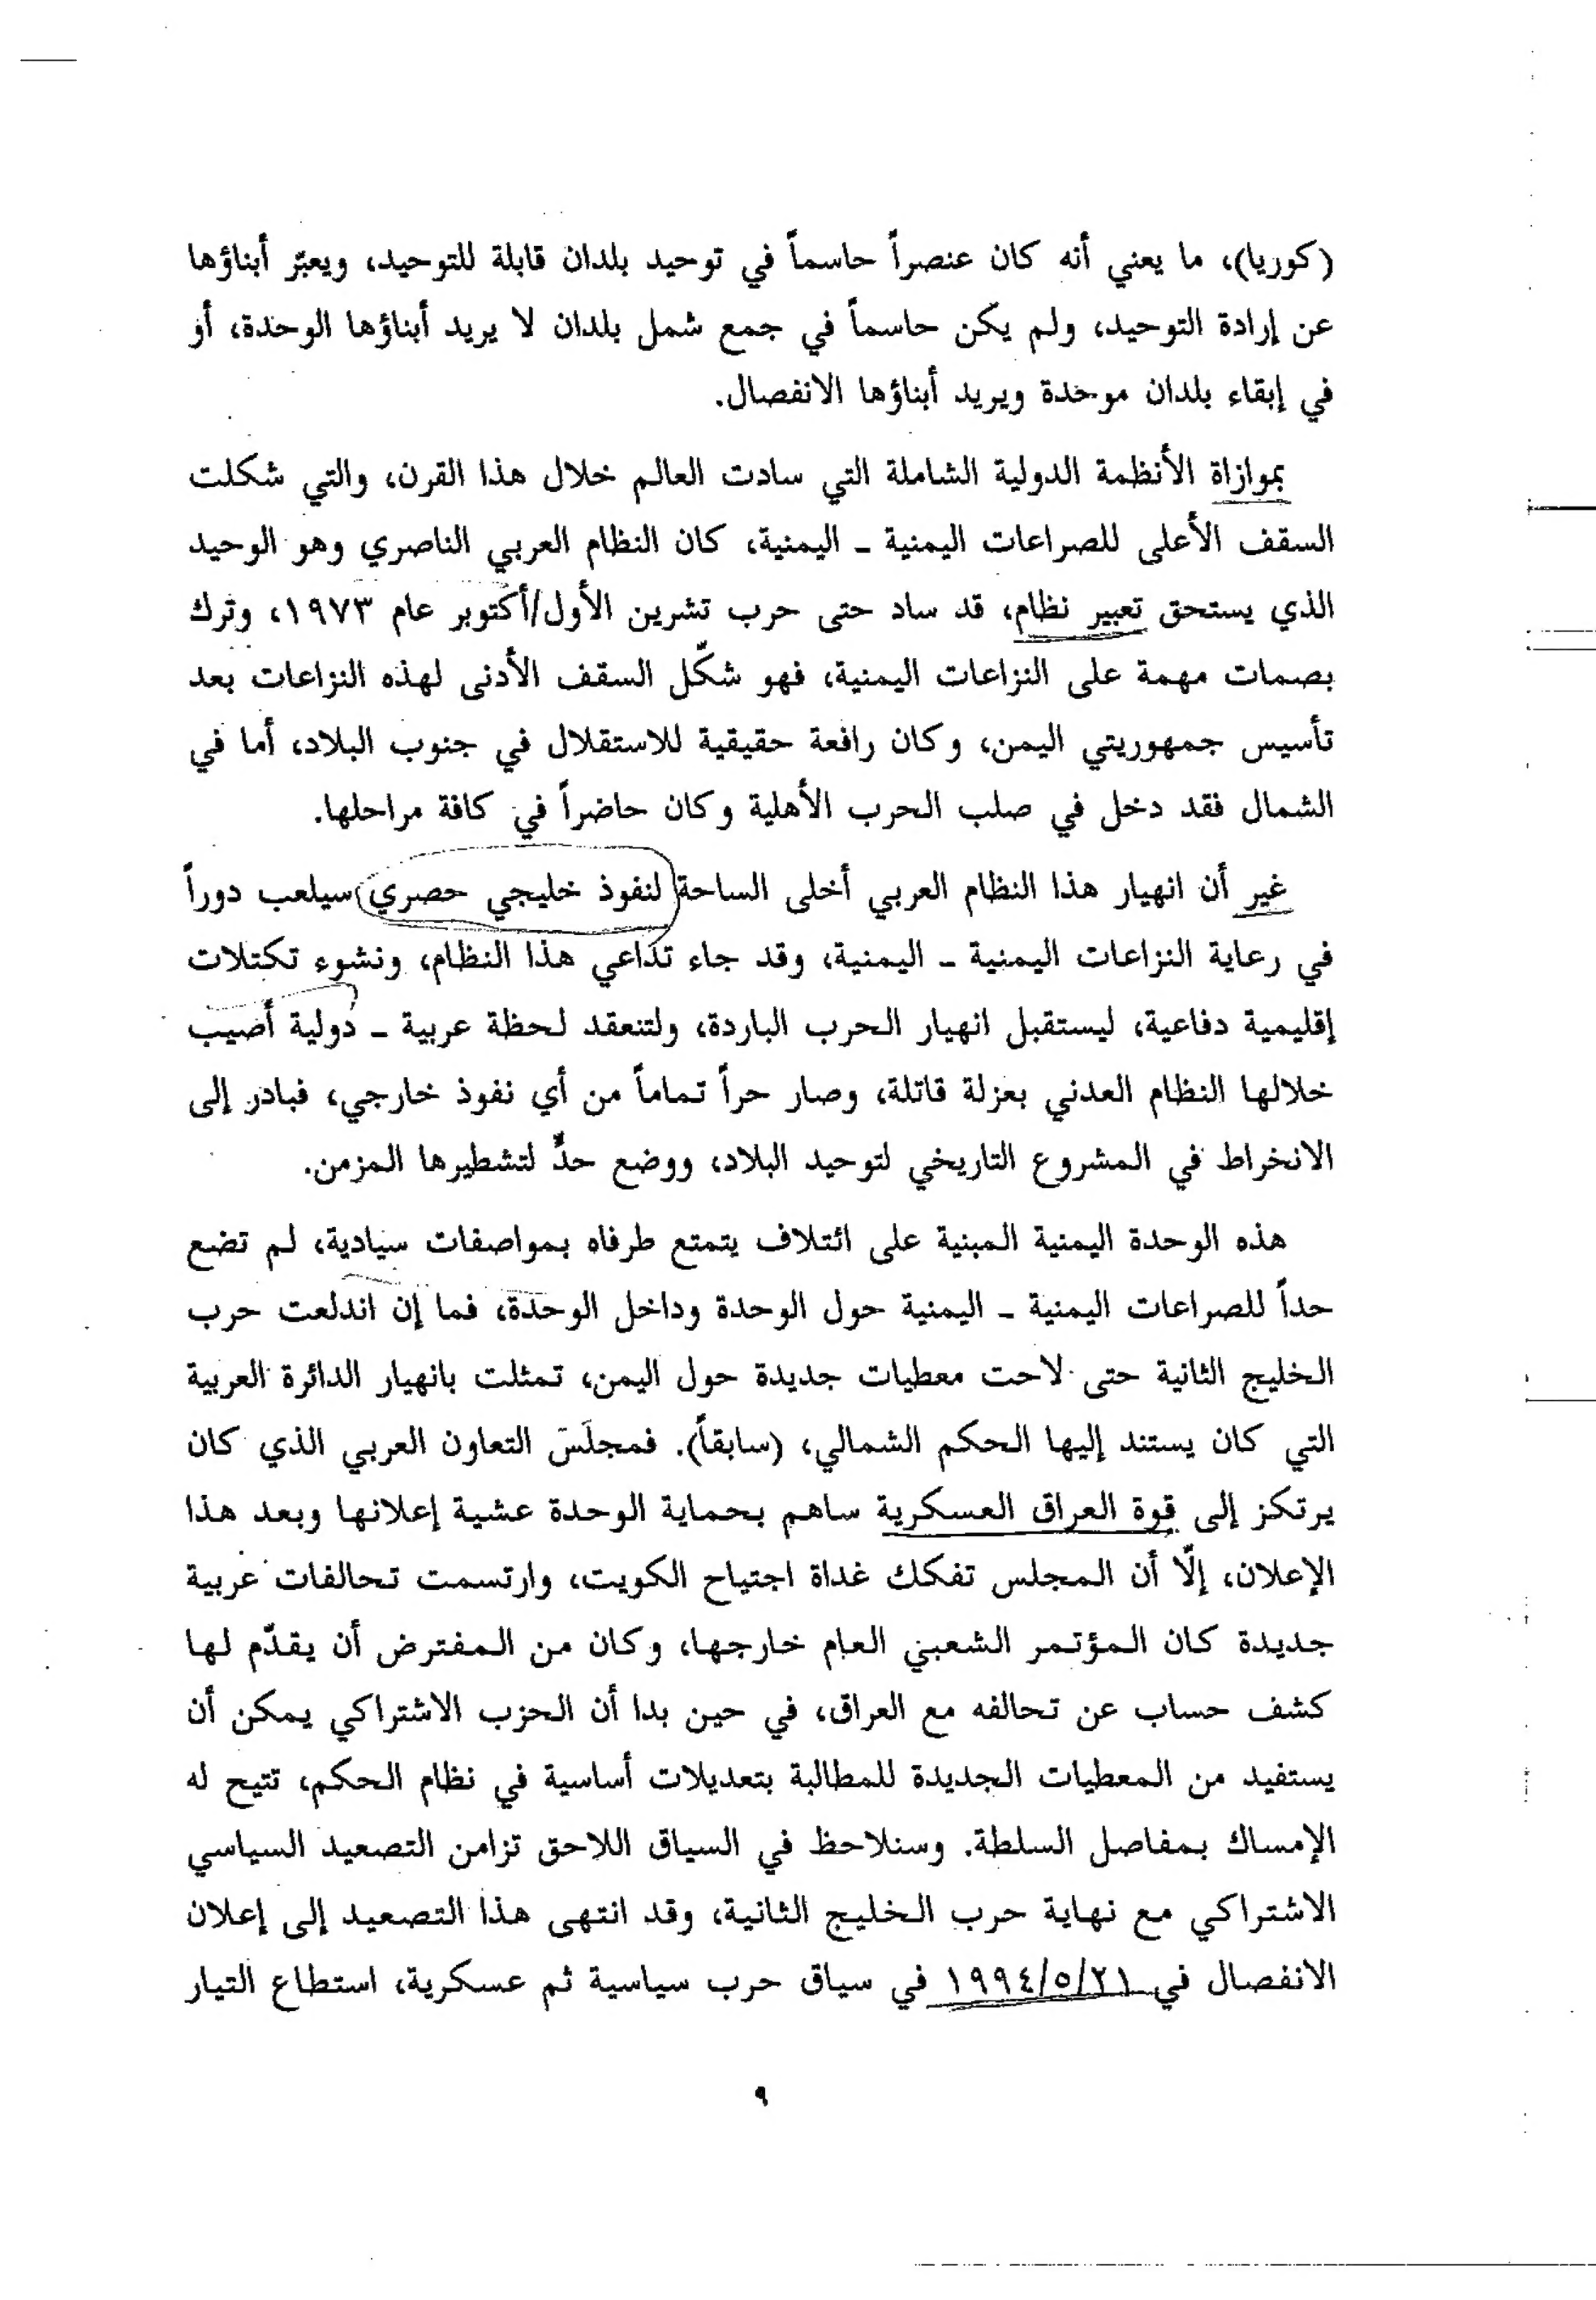 (كوريا)، ما يعني أنه كان عنصراً حاسماً في توحيد بلدان قابلة للتوحيد، ويعبّر أبناؤها
عن إرادة التوحيد، ولم يكن حاسماً في جمع شمل بلدان لا يريد أبناؤها الوحدة، أو
في إبقاء بلدان موحدة ويريد أبناؤها الانفصال.
بموازاة الأنظمة الدولية الشاملة التي سادت العالم خلال هذا القرن، والتي شكلت
السقف الأعلى للصراعات اليمنية ـ اليمنية، كان النظام العربي الناصري وهو الوحيد
الذي يستحق تعبير نظام، قد ساد حتى حرب تشرين الأول/أكتوبر عام ١٩٧٣، وترك
بصمات مهمة على النزاعات اليمنية، فهو شكّل السقف الأدنى لهذه النزاعات بعد
تأسيس جمهوريتي اليمن، وكان رافعة حقيقية للاستقلال في جنوب البلاد، أما في
الشمال فقد دخل في صلب الحرب الأهلية وكان حاضراً في كافة مراحلها.
غير أن انهيار هذا النظام العربي أخلى الساحة لنفوذ خليجي حصري سيلعب دوراً
في رعاية النزاعات اليمنية ـ اليمنية، وقد جاء تداعي هذا النظام، ونشوء تكتلات
إقليمية دفاعية، ليستقبل انهيار الحرب الباردة، ولتنعقد لحظة عربية ـ دولية أصيب
خلالها النظام العدني بعزلة قاتلة، وصار حراً تماماً من أي نفوذ خارجي، فبادر إلى
الانخراط في المشروع التاريخي لتوحيد البلاد، ووضع حدٍّ لتشطيرها المزمن.
هذه الوحدة اليمنية المبنية على ائتلاف يتمتع طرفاه بمواصفات سيادية، لم تضع
حداً للصراعات اليمنية ـ اليمنية حول الوحدة وداخل الوحدة، فما إن اندلعت حرب
الخليج الثانية حتى لاحت معطيات جديدة حول اليمن، تمثلت بانهيار الدائرة العربية
التي كان يستند إليها الحكم الشمالي، (سابقاً). فمجلس التعاون العربي الذي كان
يرتكز إلى قوة العراق العسكرية ساهم بحماية الوحدة عشية إعلانها وبعد هذا
الإعلان، إلّا أن المجلس تفكك غداة اجتياح الكويت، وارتسمت تحالفات عربية
جديدة كان المؤتمر الشعبي العام خارجها، وكان من المفترض أن يقدّم لها
كشف حساب عن تحالفه مع العراق، في حين بدا أن الحزب الاشتراكي يمكن أن
يستفيد من المعطيات الجديدة للمطالبة بتعديلات أساسية في نظام الحكم، تتيح له
الإمساك بمفاصل السلطة. وسنلاحظ في السياق اللاحق تزامن التصعيد السياسي
الاشتراكي مع نهاية حرب الخليج الثانية، وقد انتهى هذا التصعيد إلى إعلان
الانفصال في ١٩٩٤/٥/٢١ في سياق حرب سياسية ثم عسكرية، استطاع التيار
٩